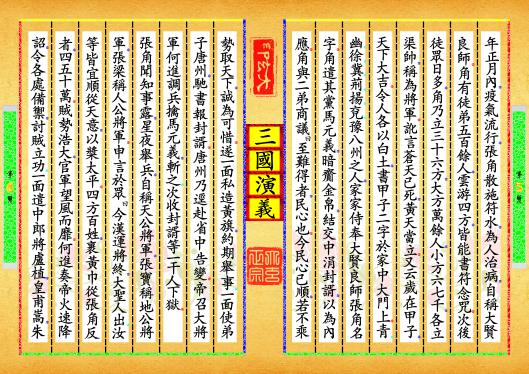 年正月內疫氣流行張角散施符水為人治病自稱大賢
良師角有徒弟五百餘人雲游四方皆能書符念咒次後
徒眾日多角乃立三十六方大方萬餘人小方六七千各立
渠帥稱為將軍訛言蒼天已死黃天當立又云歲在甲子
天下大吉令人各以白土書甲子二字於家中大門上青
幽徐冀荊揚兗豫八州之人家家侍奉大賢良師張角名
字角遣其黨馬元義暗齎金帛結交中涓封諝以為內
應角與二弟商議至難得者民心也今民心已順若不乘
三國演義
勢取天下誠為可惜遂一面私造黃旗約期舉事一面使弟
子唐州馳書報封諝唐州乃逕赴省中告變帝召大將
軍何進調兵擒馬元義斬之次收封諝等一干人下獄
張角聞知事露星夜舉兵自稱天公將軍張寶稱地公將
軍張梁稱人公將軍申言於眾今漢運將終大聖人出汝
等皆宜順從天意以樂太平四方百姓裹黃巾從張角反
者四五十萬賊勢浩大官軍望風而靡何進奏帝火速降
詔令各處備禦討賊立功一面遣中郎將盧植皇甫嵩朱